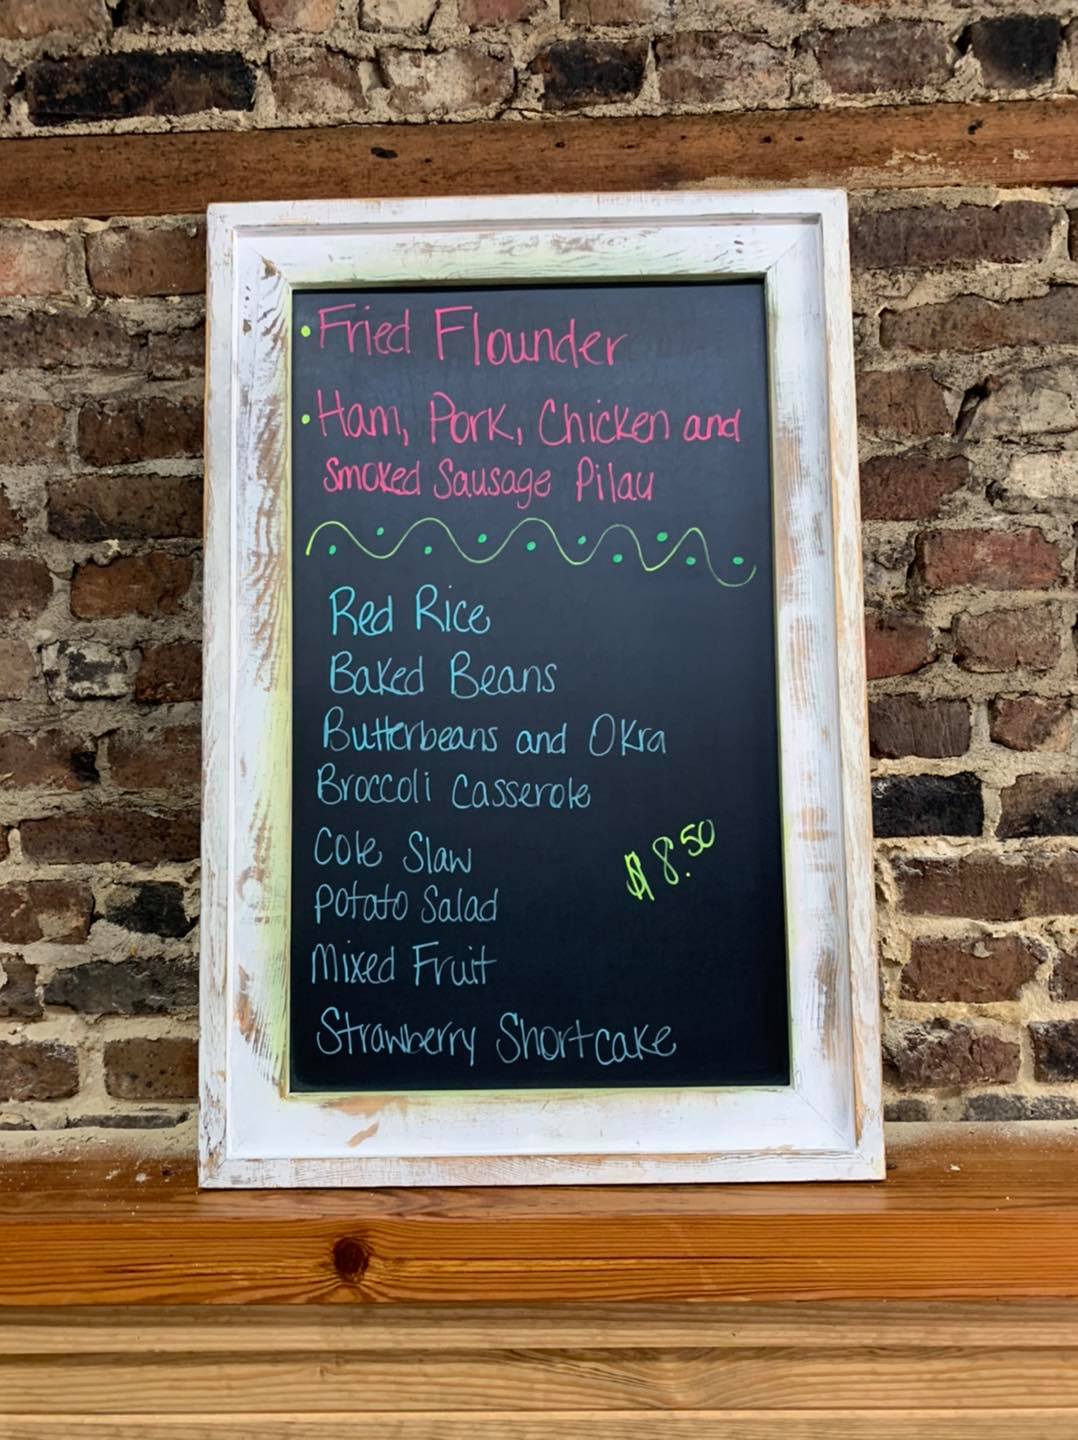 • Fried Flounder
• Ham, Pork, Chicken and
Smoked Sausage Pilau
Red Rice
Baked Beans
Butterbeans and Okra
Broccoli Casserole
Cole Slaw
$8.50
Potato Salad
Mixed Fruit
Strawberry Shortcake